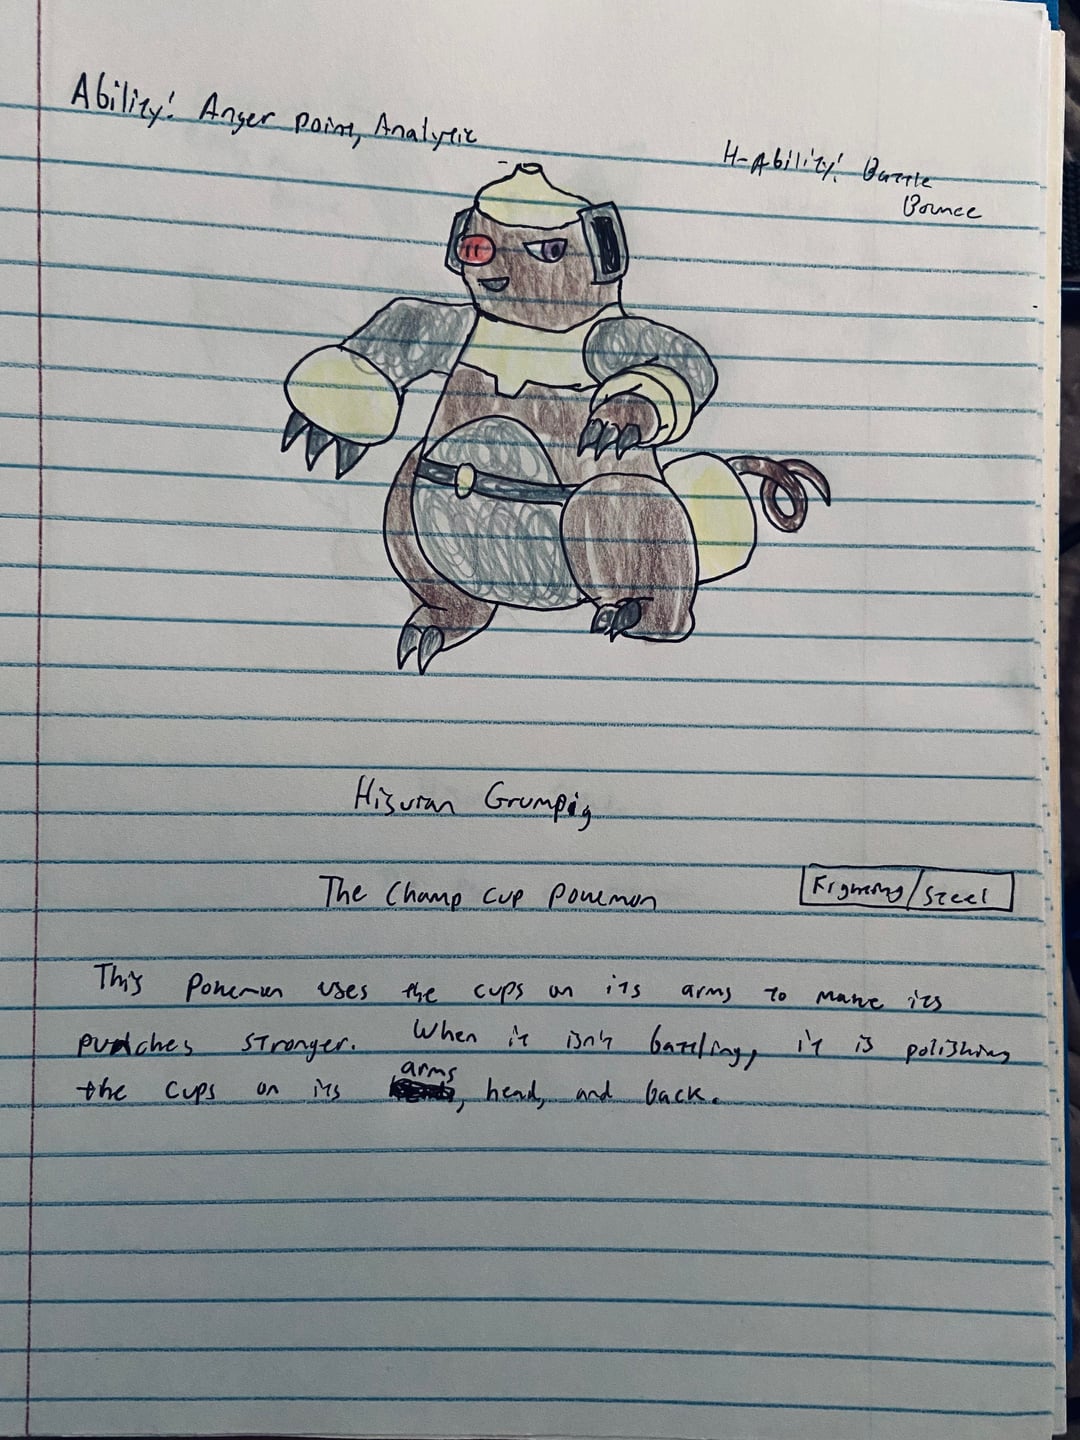 Ability: Anger Point, Analytic
H-Ability: Battle
Bounce
Hisuian Grumpig
The Champ Cup Pokemon
Fighting/Steel
This Pokemon uses the cups on its arms to make its
punches stronger. When it isn't battling, it is polishing
arms
the cups on its , head, and back.